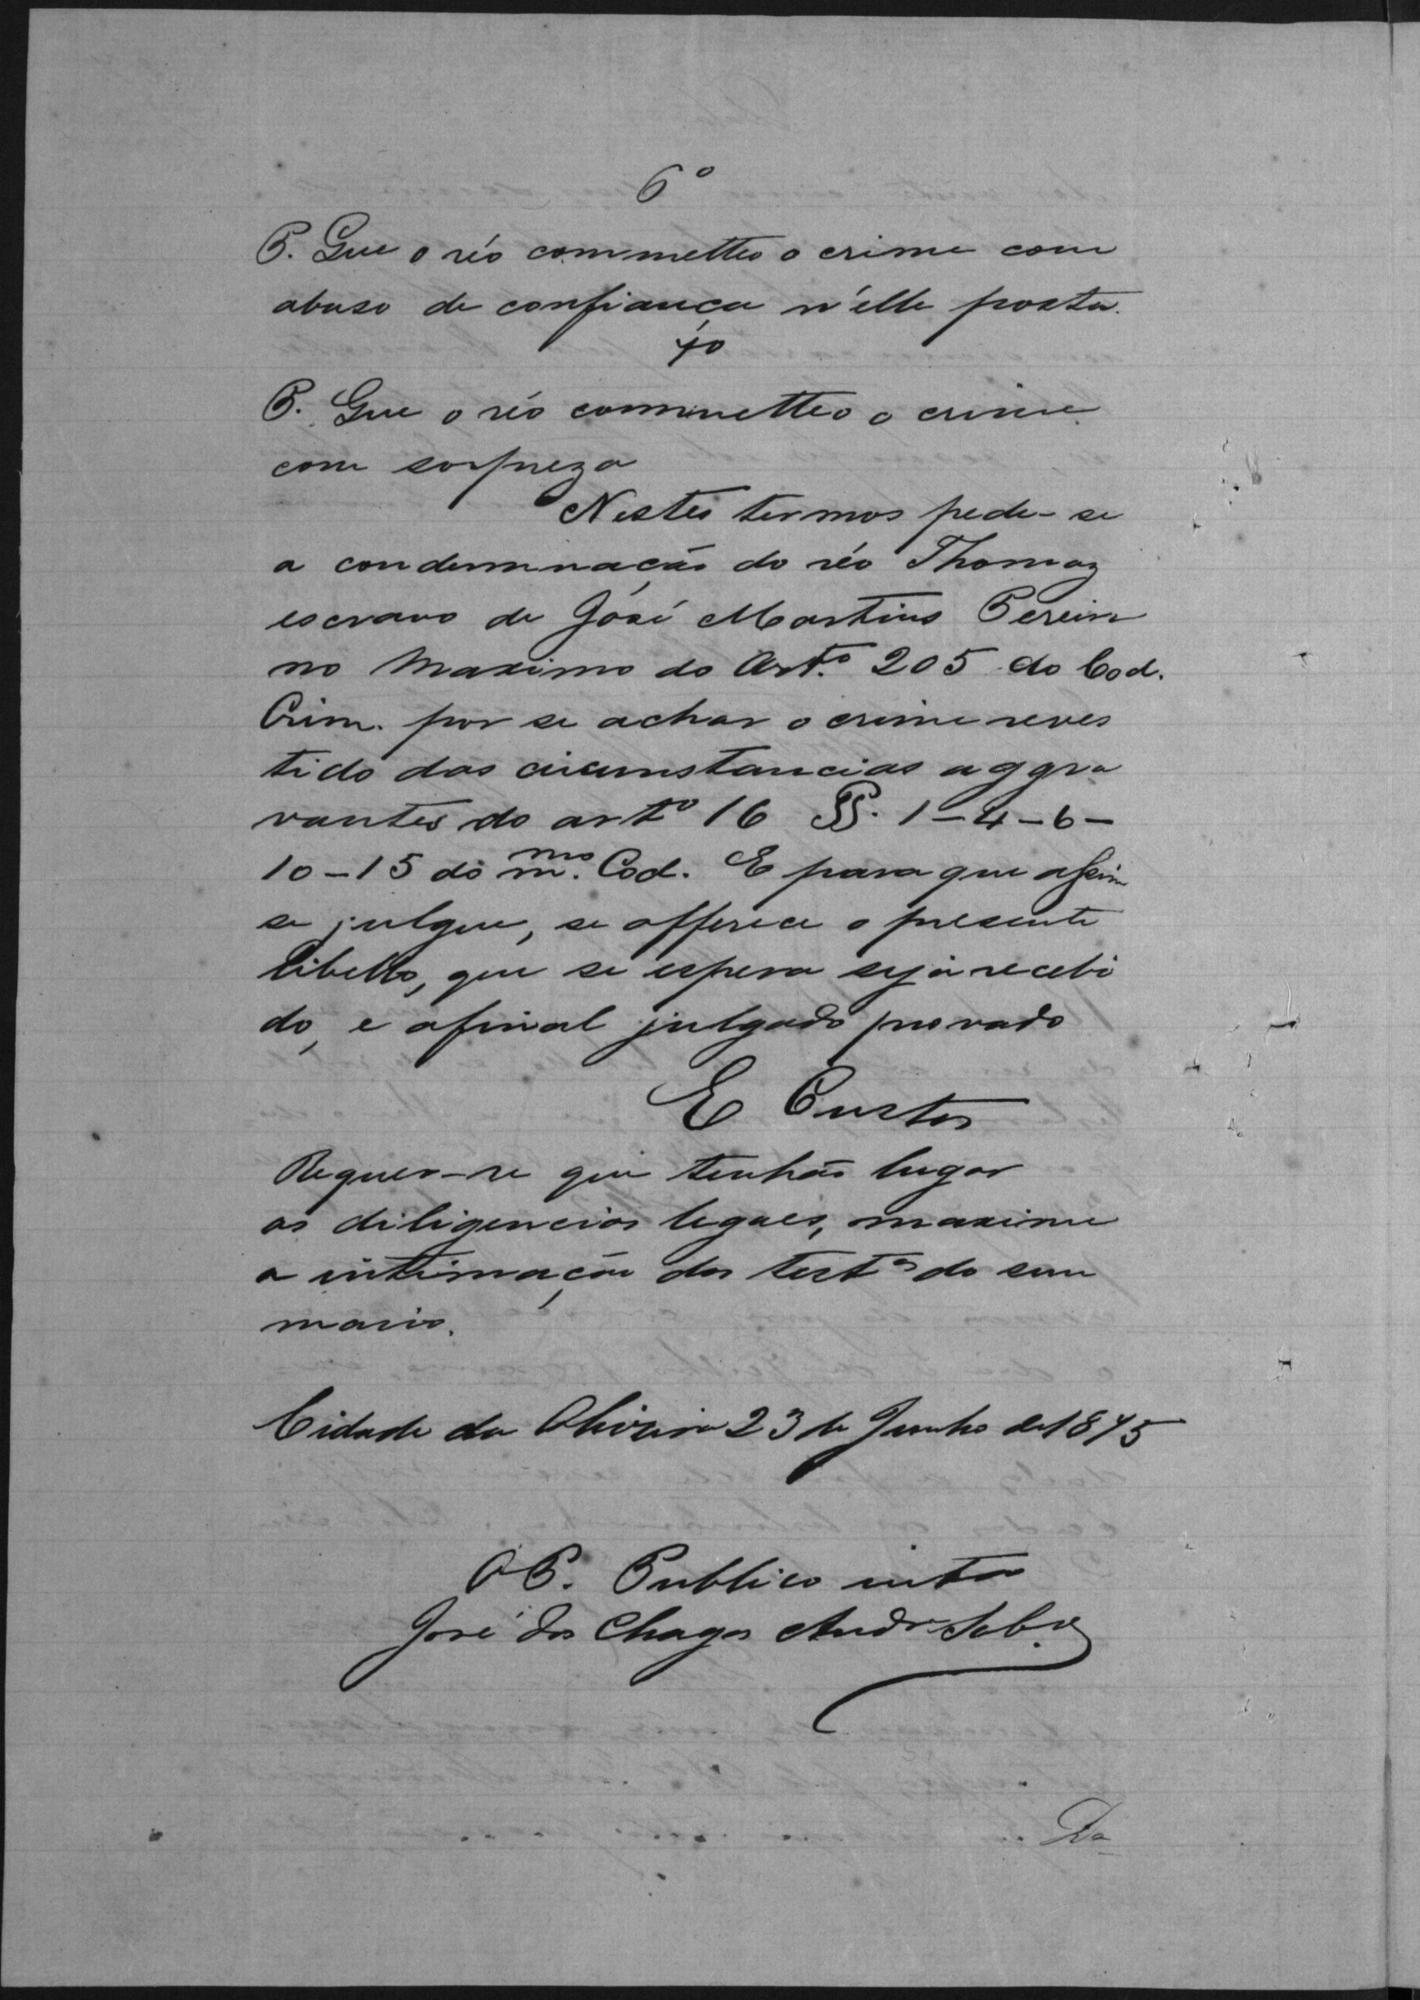 6º
P. Que o réo commetteo o crime com
abuso de confiança n'elle posta.
7º
P. Que o réo commetteo o crime
com sorpreza
Nestes termos pede-se
a condemnação do réo Thomaz
escravo de José Martins Pereira
no maximo do Artº. 205 do Cod.
Crim. por se achar o crime reves
tido das circumstancias aggra
vantes do artº 16 §§. 1-4-6-
10-15 do mmo. Cod. E para que assim
se julgue, se offerece o presente
libello, que se espera seja recebi
do, e afinal julgado provado
E Custas
Requer-se que tenhão lugar
as diligencias legaes, maxime
a intimação das testas do sum
mario.
Cidade da Oliveira 23 de Junho de 1875
O P. Publico into
José das Chagas Andre Sobro
Da